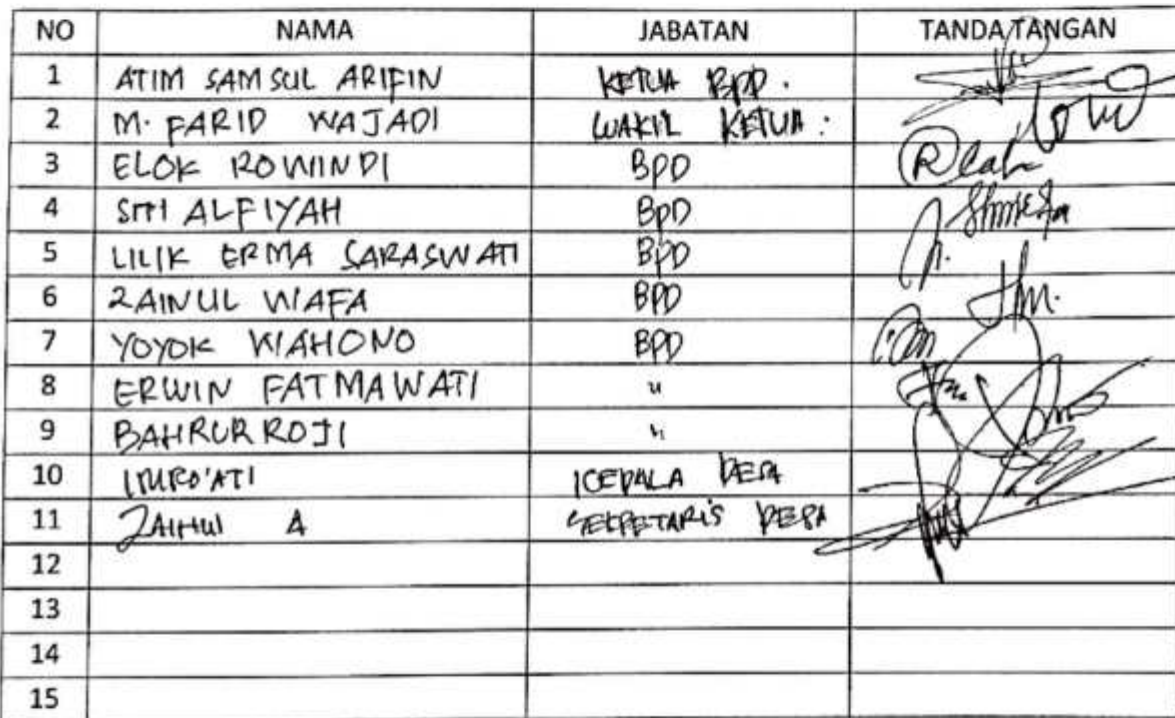 NO NAMA JABATAN TANDA TANGAN
1 ATIM SAMSUL ARIFIN KETUA BPD.
2 M. FARID WAJADI WAKIL KETUA:
3 ELOK ROWINDI BPD
4 SITI ALFIYAH BPD
5 LILIK ERMA SARASWATI BPD
6 ZAINUL WAFA BPD
7 YOYOK WAHONO BPD
8 ERWIN FATMAWATI "
9 BAHRUR ROJI "
10 KEPALA DESA
11 A SEKRETARIS DESA
12
13
14
15